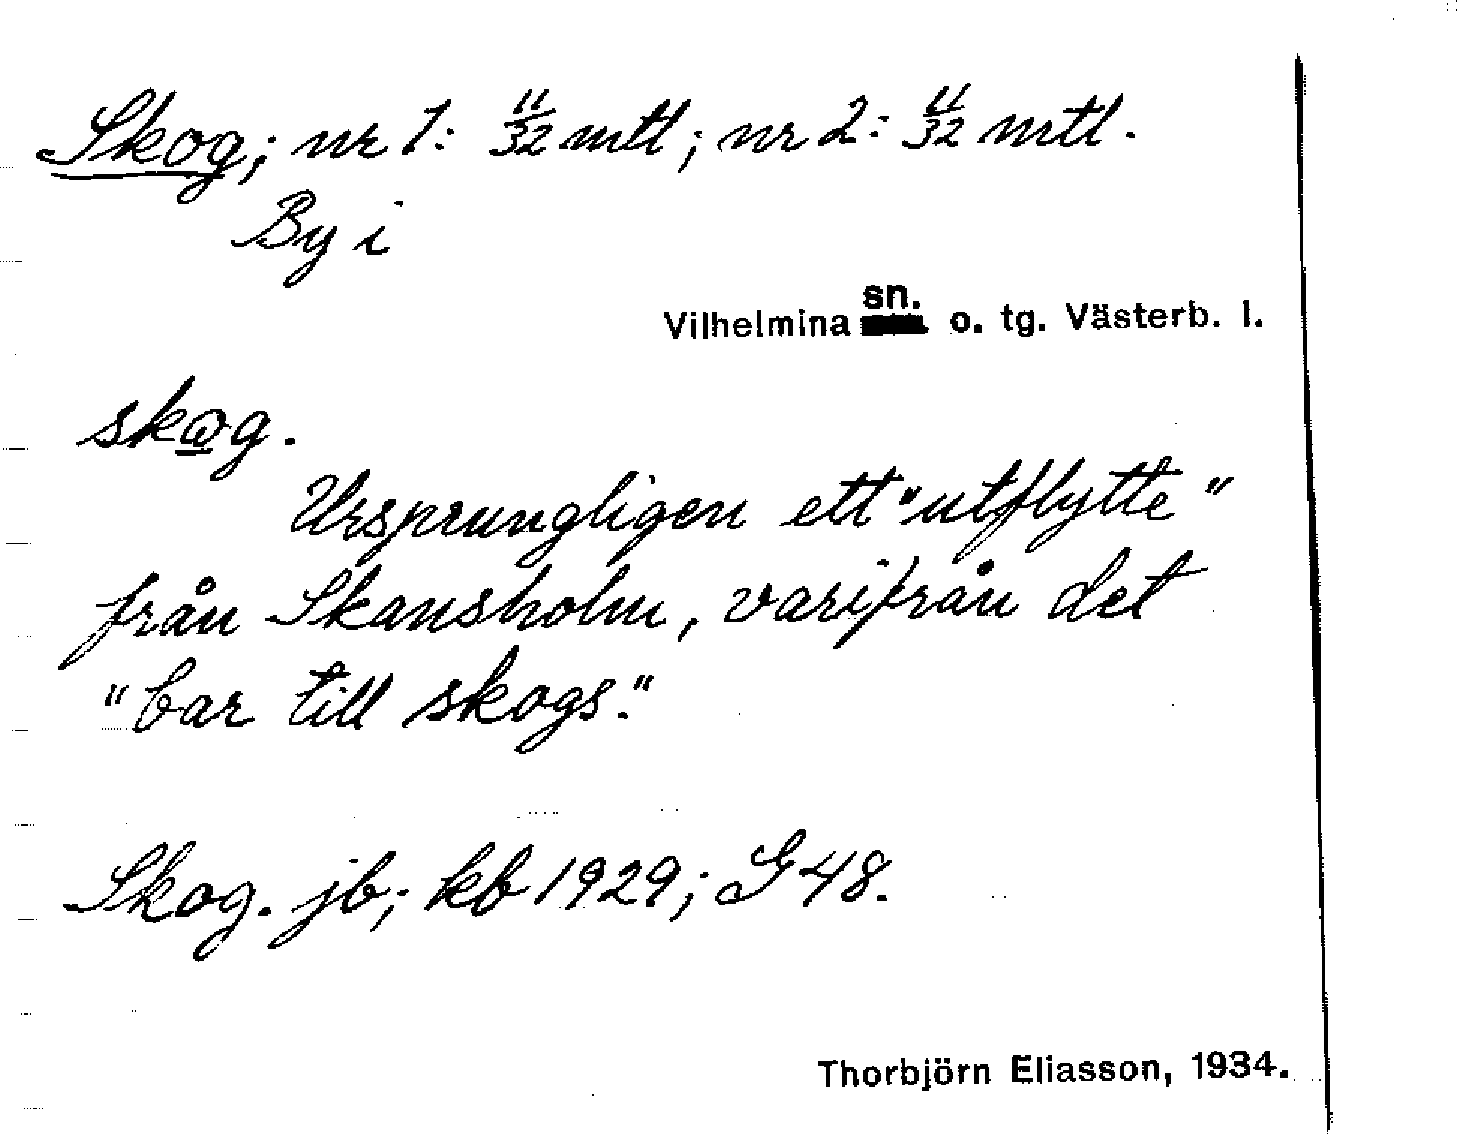 Skog; nr 1: 11/32 mtl; nr 2: 11/32 mtl.
By i
Vilhelmina sn. o. tg. Västerb. l.
skωg.
Ursprungligen ett "utflytte"
från Skansholm, varifrån det
"bar till skogs."
Skog. jb; kb 1929; G 48.
Thorbjörn Eliasson, 1934.